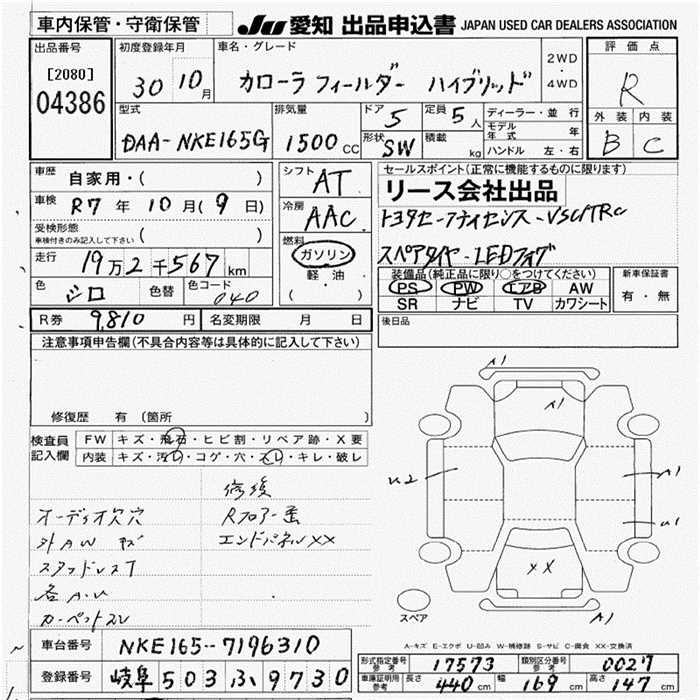 車内保管・守衛保管 JU 愛知 出品申込書 JAPAN USED CAR DEALERS ASSOCIATION
出品番号 初度登録年月 車名・グレード 評価点
[2080] 30 10月 カローラ フィールダー ハイブリッド 2WD・4WD R
04386 型式 排気量 ドア 5 定員 5人 ディーラー・並行 外装 内装
DAA-NKE165G 1500CC 形状 SW 積載 kg モデル年式 年 B C
ハンドル 左・右
車歴 自家用・( ) シフト AT セールスポイント(正常に機能するものに限ります)
リース会社出品
車検 R7年10月(9日) 冷房 AAC トヨタセーフティセンス-VSC/TRC
受検形態 車検付きのみ記入して下さい ( ) スペアタイヤ-LEDフォグ
走行 19万2千567km 燃料 ガソリン 軽油 ( ・ )
装備品(純正品に限り○をつけてください) 新車保証書
PS PW エアB AW 有・無
SR ナビ TV カワシート
色 シロ 色替 色コード 040
R券 9,810円 名変期限 月 日 後日品
注意事項申告欄(不具合内容等は具体的に記入して下さい)
修復歴 有(箇所
検査員記入欄 FW キズ・飛石・ヒビ割・リペア跡・X要
内装 キズ・汚れ・コゲ・穴・スレ・キレ・破レ
修復
オーディオ欠穴 Rフロアー歪
外AW キズ エンドパネルXX
スタッドレスT
各A・U
カーペットスレ
A1
A1
U2
A1
U1
XX
A1
スペア
A-キズ E-エクボ U-凹み W-補修跡 S-サビ C-腐食 XX-交換済
車台番号 NKE165-7196310
登録番号 岐阜 503 ふ 9730
型式指定番号 参考 17573 類別区分番号 参考 0027
車庫証明用 参考 長さ 440cm 幅 169cm 高さ 147cm